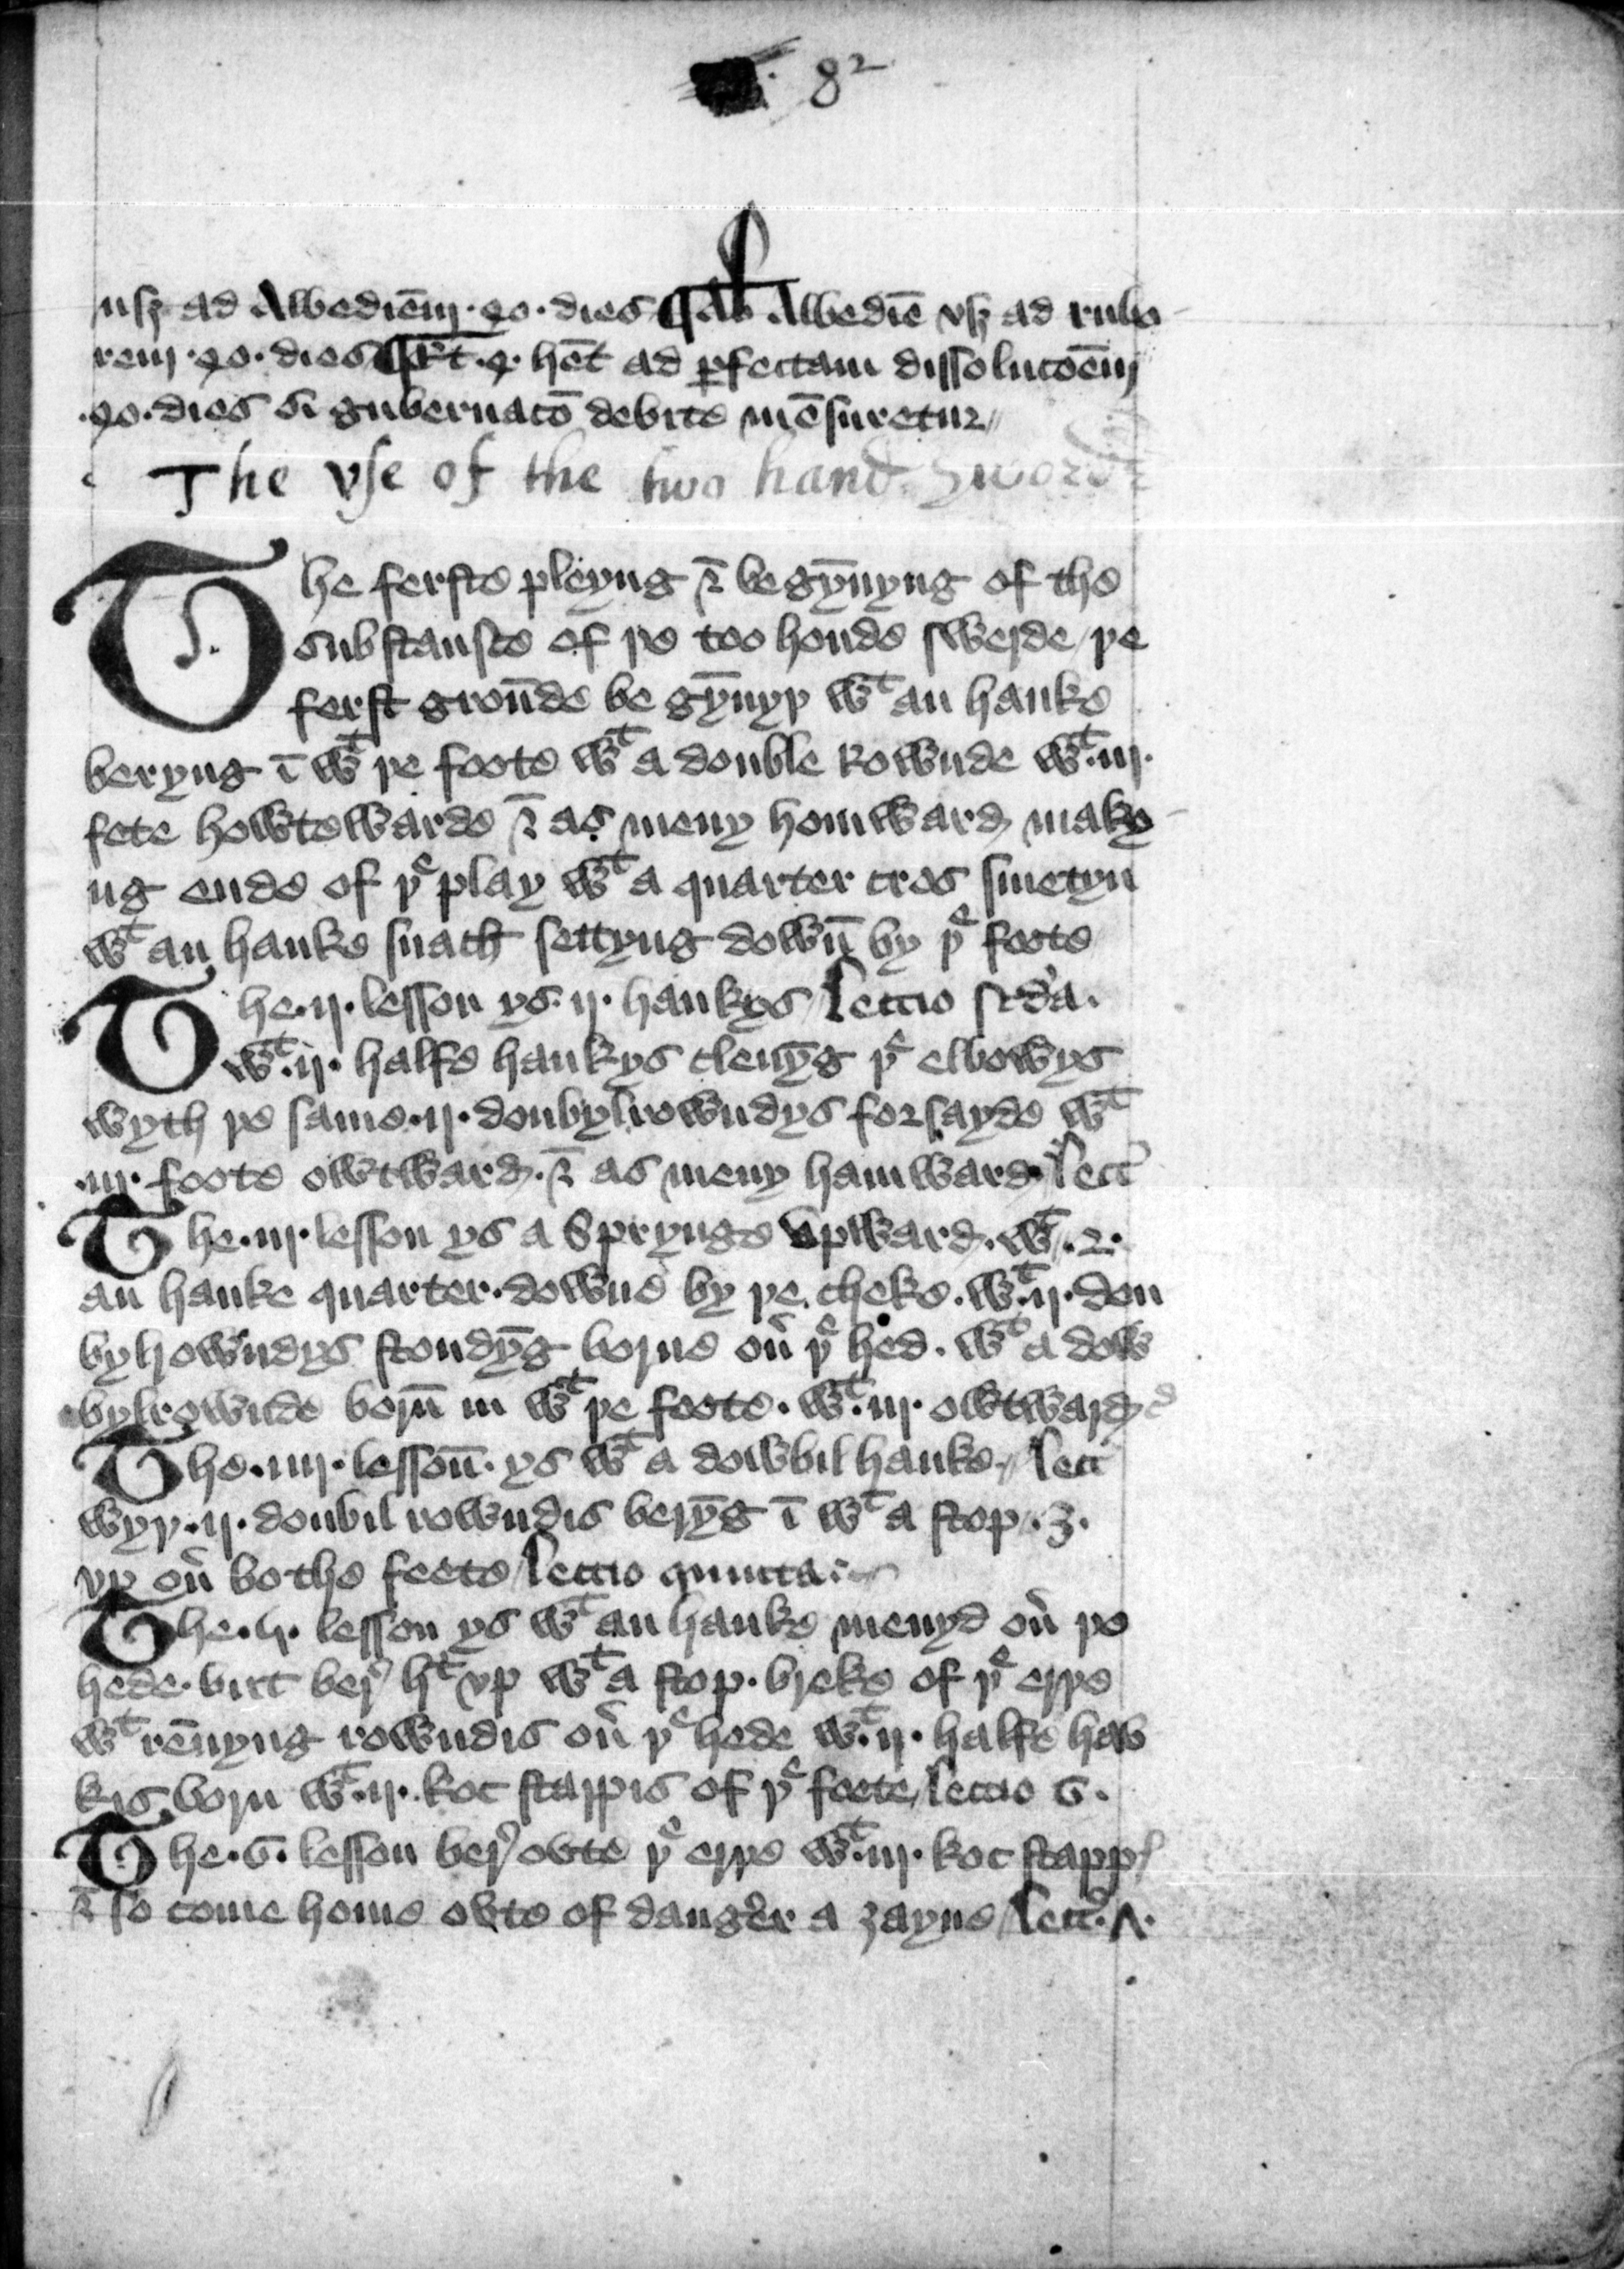 82
usqꝫ ad Albediēm · 40 · dies ¶ Ab Albediē vsqꝫ ad rubo
rem · 40 · dies ¶ 4 · hēt ad ꝑfectam dissolucōem
· 40 · dies si gubernacō debite mēsuretur //
The vse of the two hand Sword
The ferste pleyng & begȳnyng of the
substansce of þe too honde swerde / þe
ferst grounde be gȳnyþ wt an hauke
beryng ī wt þe foote wt a double Rownde wt · iij ·
fete howtewarde & as meny homward maky
ng ende of þe play wt a quarter cros smetyn
wt an hauke snach settyng down by þe foote
The · ij · lesson ys · ij · haukys / leccio scda ·
wt · ij · halfe haukys clenȳg þe elbowys
wyth þe same · ij · doubylrowndys forsayde wt
· iij · foote owtward · & as meny hamward · lecc
The · iij · lesson ys a Sprynge vpward · wt · 2 ·
an hauke quarter · downe by þe cheke · wt · ij · dou
bylrowndys stondȳg borne ou þe hed · wt a dow
bylrownde born in wt þe foote · wt · iij · owtward
The · iiij · lesson · ys wt a dowbil hauke // lecc
wyþ · ij · doubil rowndis berȳg ī wt a stop · 3 ·
vp ou bothe feete / leccio quinta
The · 5 · lesson ys wt an hauke menyd ou þe
hede · butt ber ht vp wt a stop · breke of þe erþe
wt rēnyng rowndis ou þe hede wt · ij · halfe hau
kis born wt · ij · koc stappis of þe foete / leccio 6 ·
The · 6 · lesson ber ovte þe erþe wt · iij · koc stapp
& so come home ovte of danger a ȝayne / lecc · 7 ·